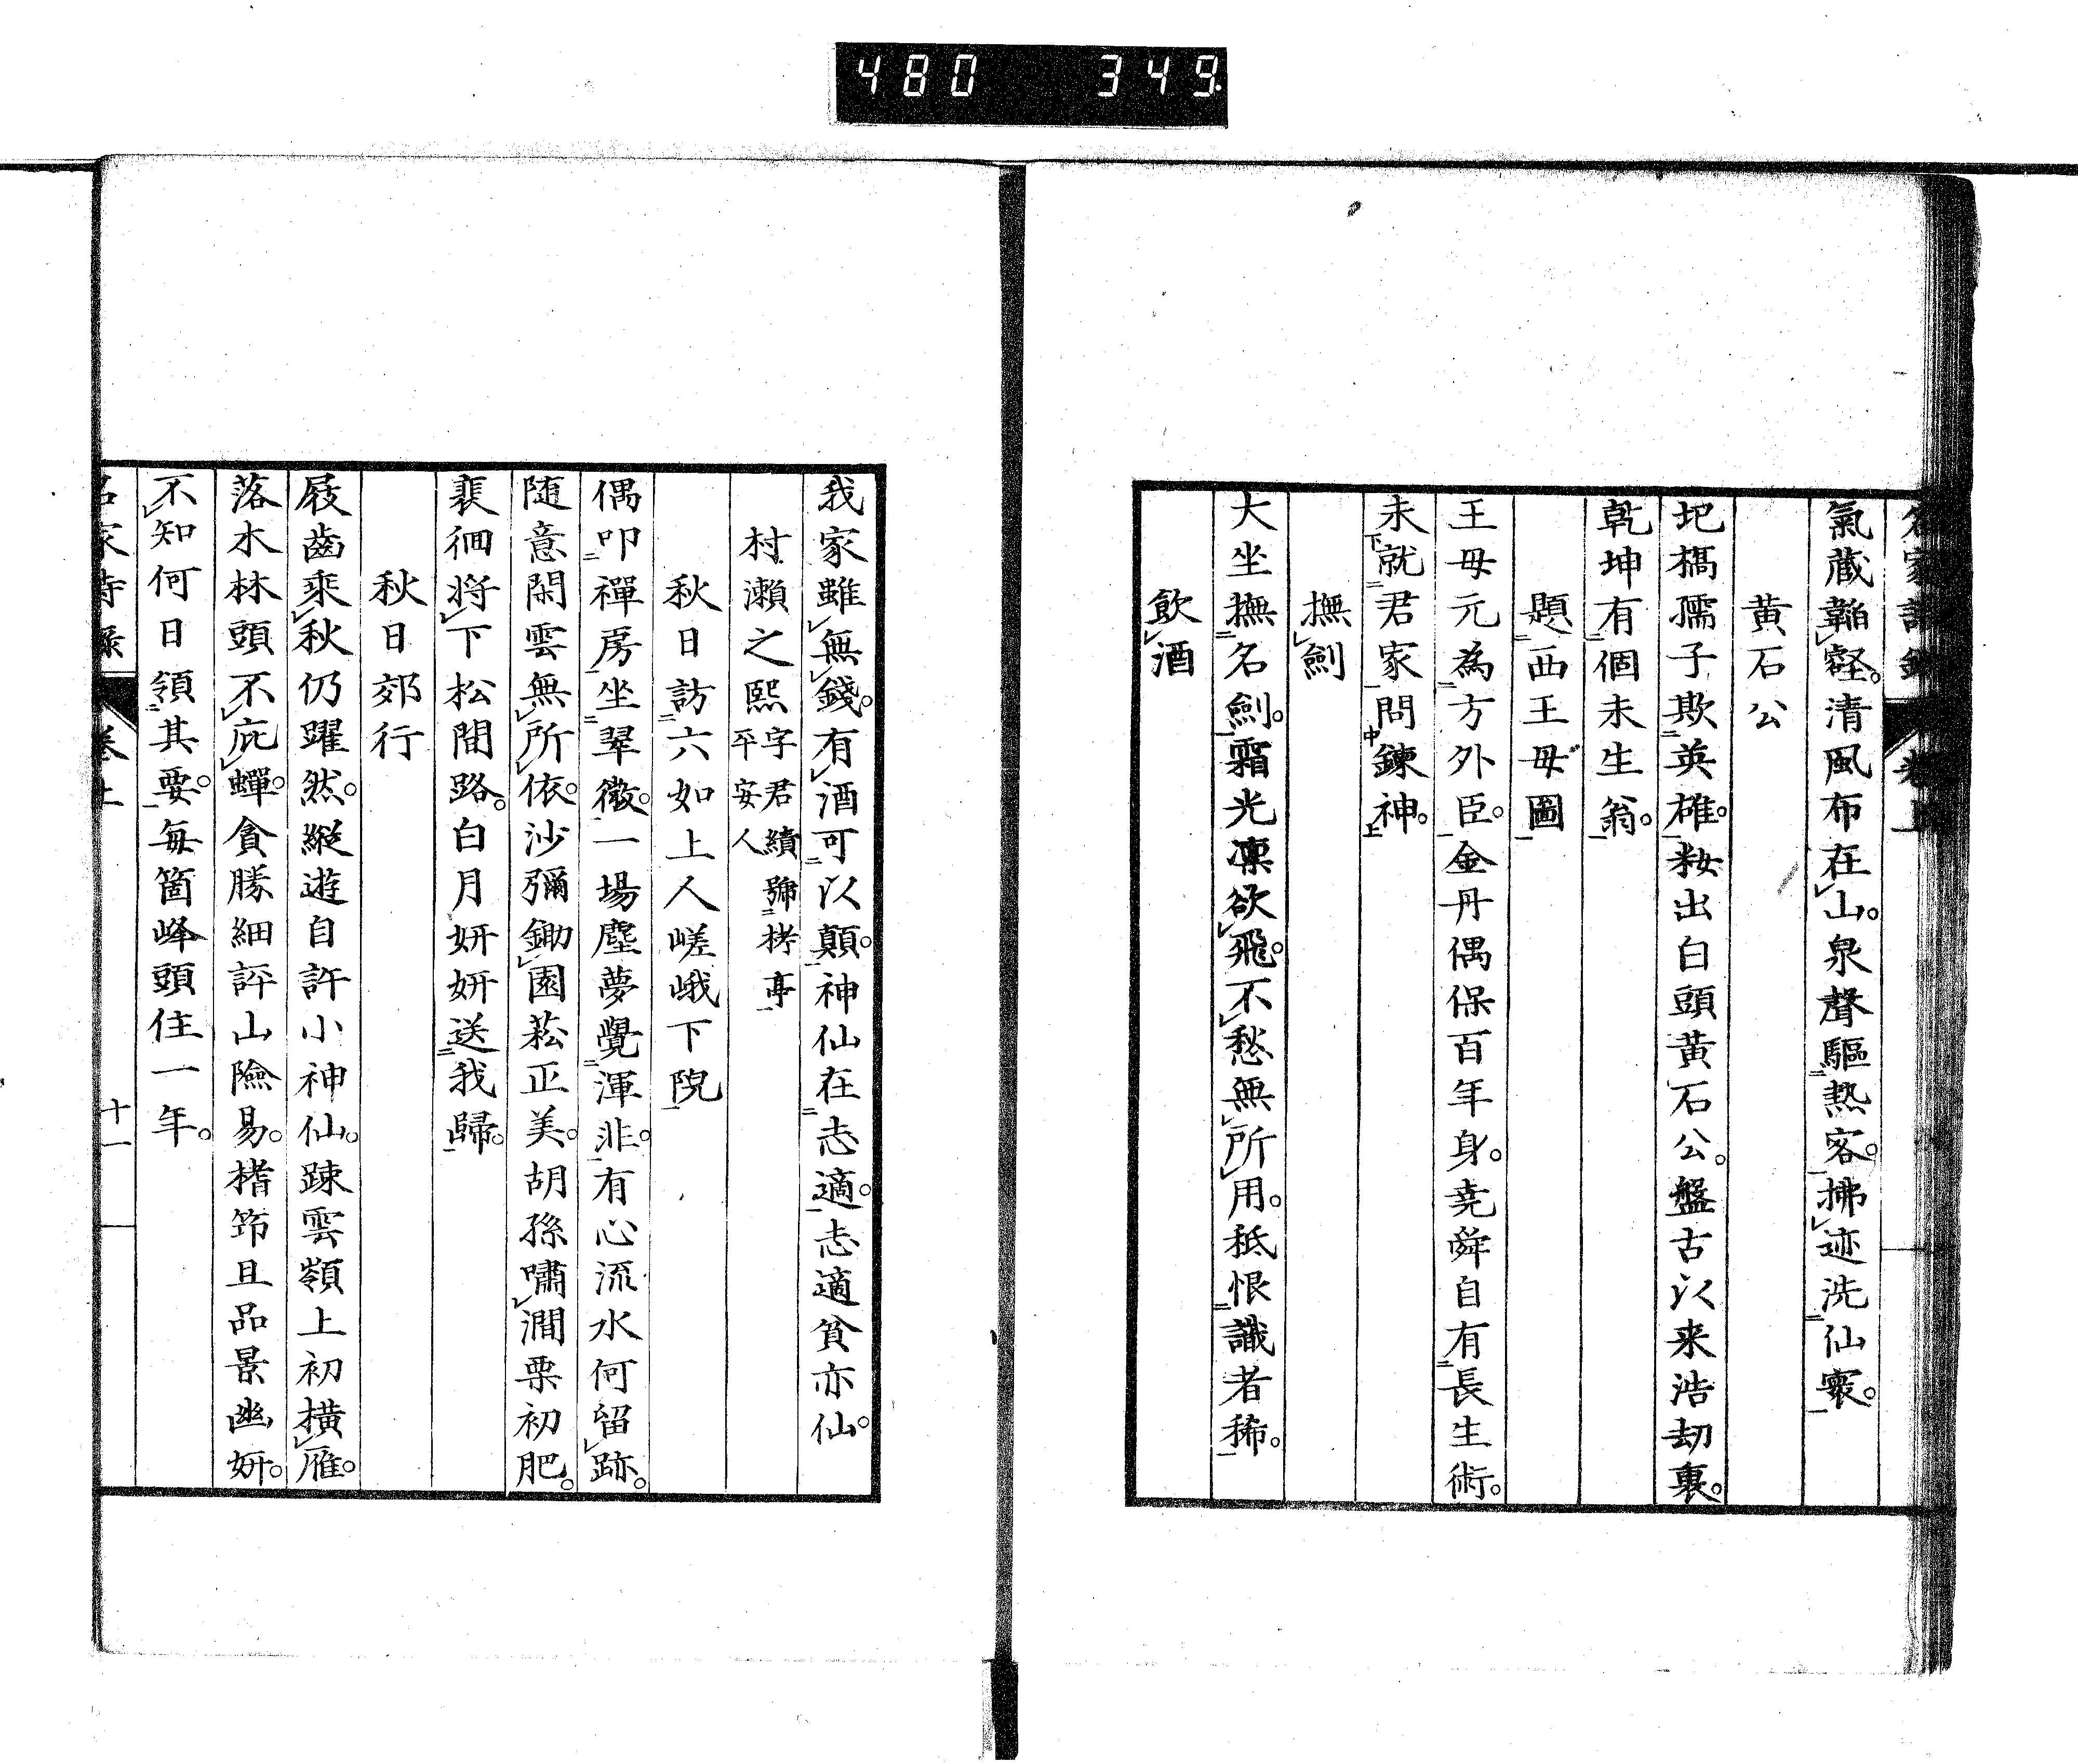 480 349
名家詩錄 卷上
氣蔵韜壑。清風布在山。泉聲驅熱客。拂迹洗仙寰。
黄石公
圯橋孺子欺英雄。粧出白頭黄石公。盤古以来浩劫裏。
乾坤有個未生翁。
題西王母圖
王母元為方外臣。金丹偶保百年身。堯舜自有長生術。
未就君家問鍊神。
撫劍
大坐撫名劍。霜光凛欲飛。不愁無所用。秖恨識者稀。
飲酒
我家雖無錢。有酒可以顛。神仙在志適。志適貧亦仙。
村瀨之熙 字君績號栲亭平安人
秋日訪六如上人嵯峨下院
偶叩禪房坐翠微。一場塵夢覺渾非。有心流水何留跡。
随意閑雲無所依。沙彌鋤園菘正美。胡孫嘯澗栗初肥。
裴徊將下松間路。白月妍妍送我歸。
秋日郊行
屐齒乘秋仍躍然。縱遊自許小神仙。踈雲嶺上初横雁。
落木林頭不庇蟬。貪勝細評山險易。楮筇且品景幽妍。
不知何日領其要。每箇峰頭住一年。
名家詩錄 卷上 十一